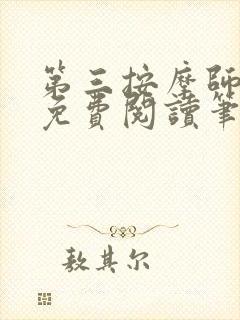 第三按摩師
免費閱讀筆
敖其尔